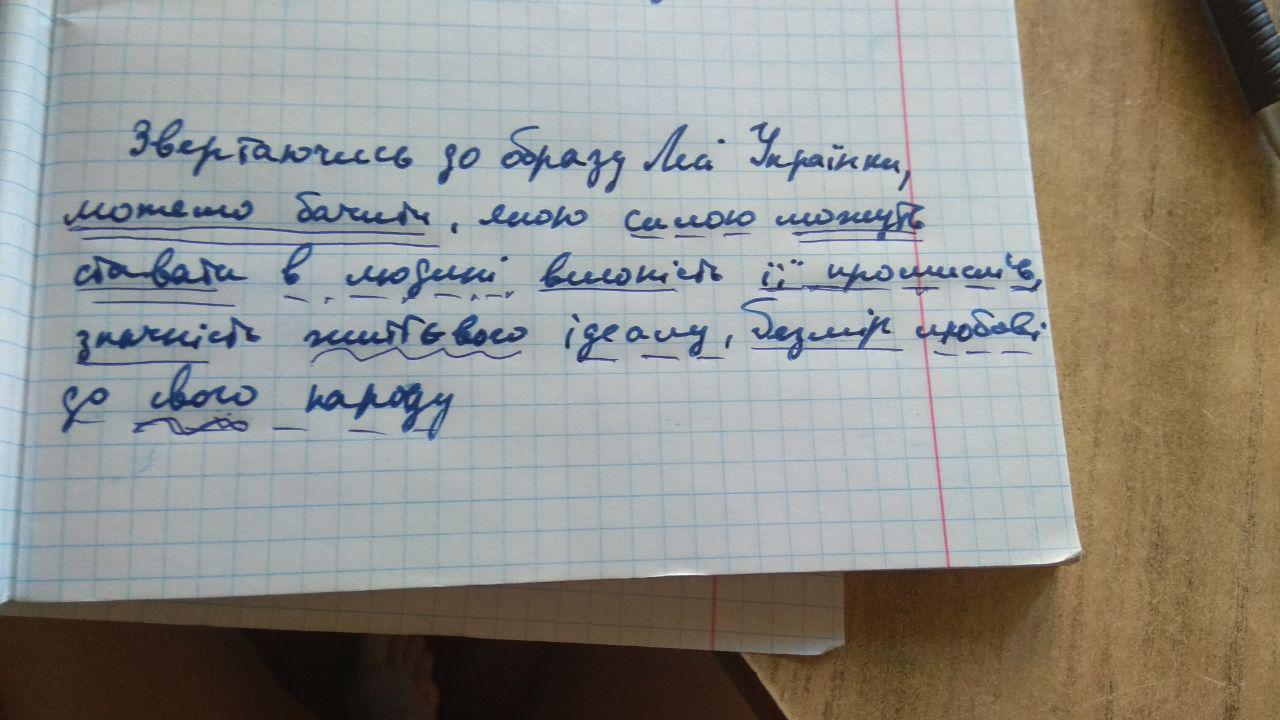 Звертаючись до образу Лесі Українки,
можемо бачити, якою силою можуть
ставати в людині високість її промислів,
значність життєвого ідеалу, безмір любові
до свого народу